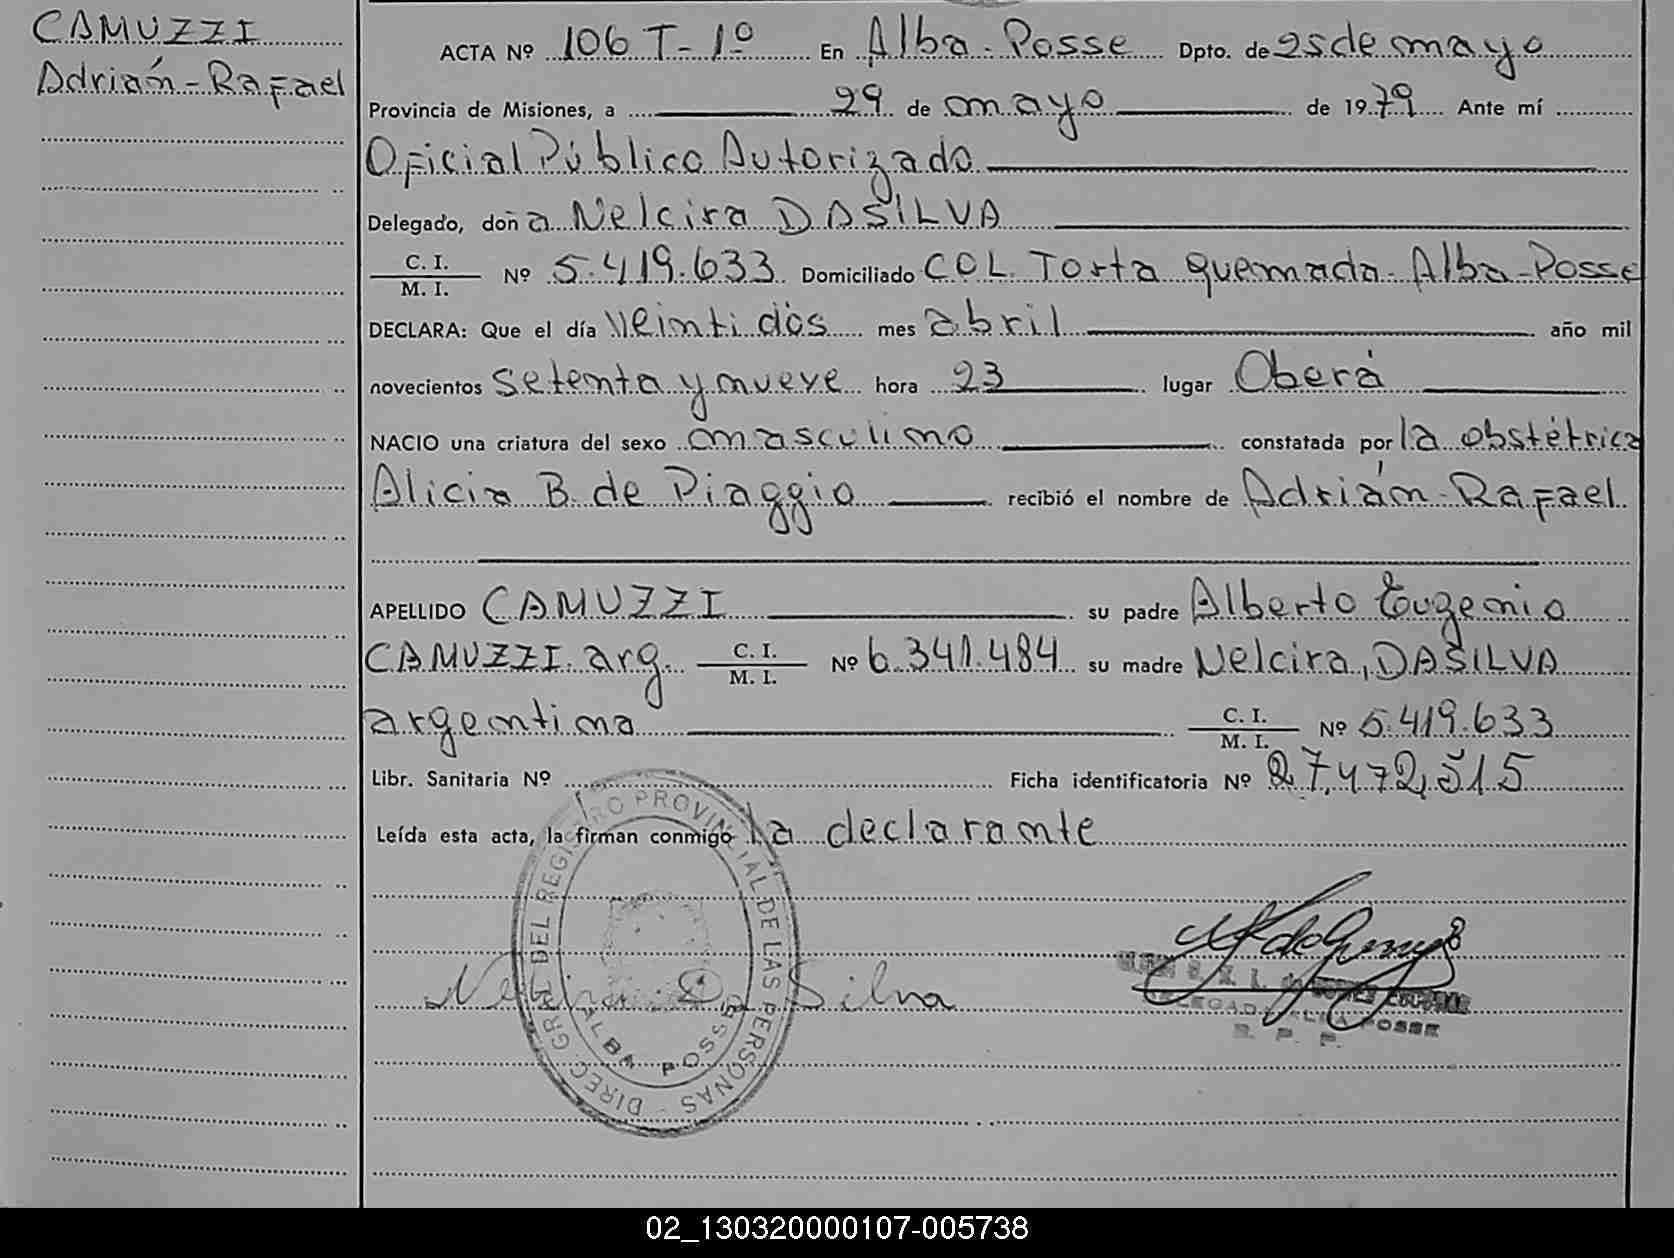 CAMUZZI
Adrián-Rafael
ACTA Nº 106 T-1º En Alba-Posse Dpto. de 25 de mayo
Provincia de Misiones, a 29 de mayo de 1979 Ante mí
Oficial Público Autorizado
Delegado, doña Nelcira DASILVA
C. I. / M. I. Nº 5.419.633 Domiciliado COL. Torta quemada-Alba-Posse
DECLARA: Que el día Veintidós mes abril año mil
novecientos setenta y nueve hora 23 lugar Oberá
NACIO una criatura del sexo masculino constatada por la obstétrica
Alicia B. de Piaggio recibió el nombre de Adrián-Rafael
APELLIDO CAMUZZI su padre Alberto Eugenio
CAMUZZI. arg. C. I. / M. I. Nº 6.341.484 su madre Nelcira, DASILVA
argentina C. I. / M. I. Nº 5.419.633
Libr. Sanitaria Nº Ficha identificatoria Nº 27,472,515
Leída esta acta, la firman conmigo la declarante
DIREC. GRAL DEL REGISTRO PROVINCIAL DE LAS PERSONAS -
ALBA POSSE
Nelcira Da Silva
DELEGADA ALBA POSSE
R. P. P.
02_130320000107-005738